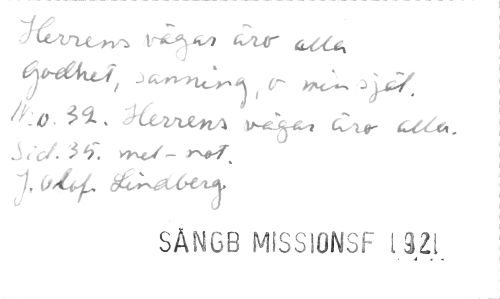 Herrens vägar äro alla
godhet, sanning, o min själ.
N:o. 32. Herrens vägar äro alla.
Sid. 35. mel-not.
J. Olof. Lindberg.
SÅNGB MISSIONSF 1921